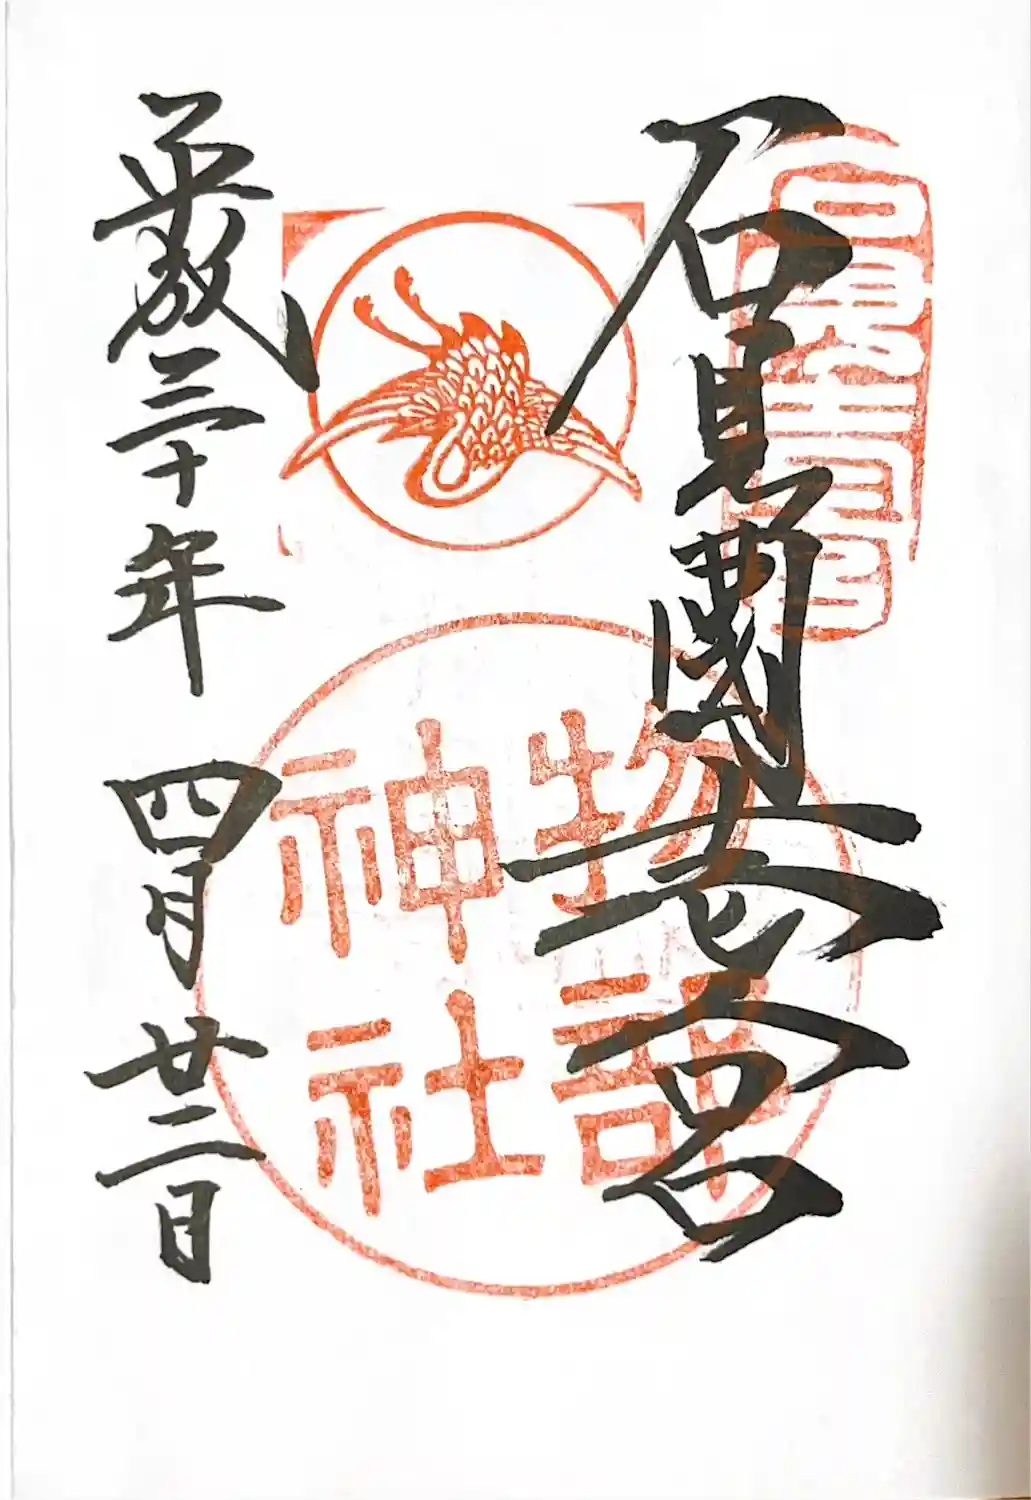 石見國一宮
物部
神社
平成三十年 四月廿二日